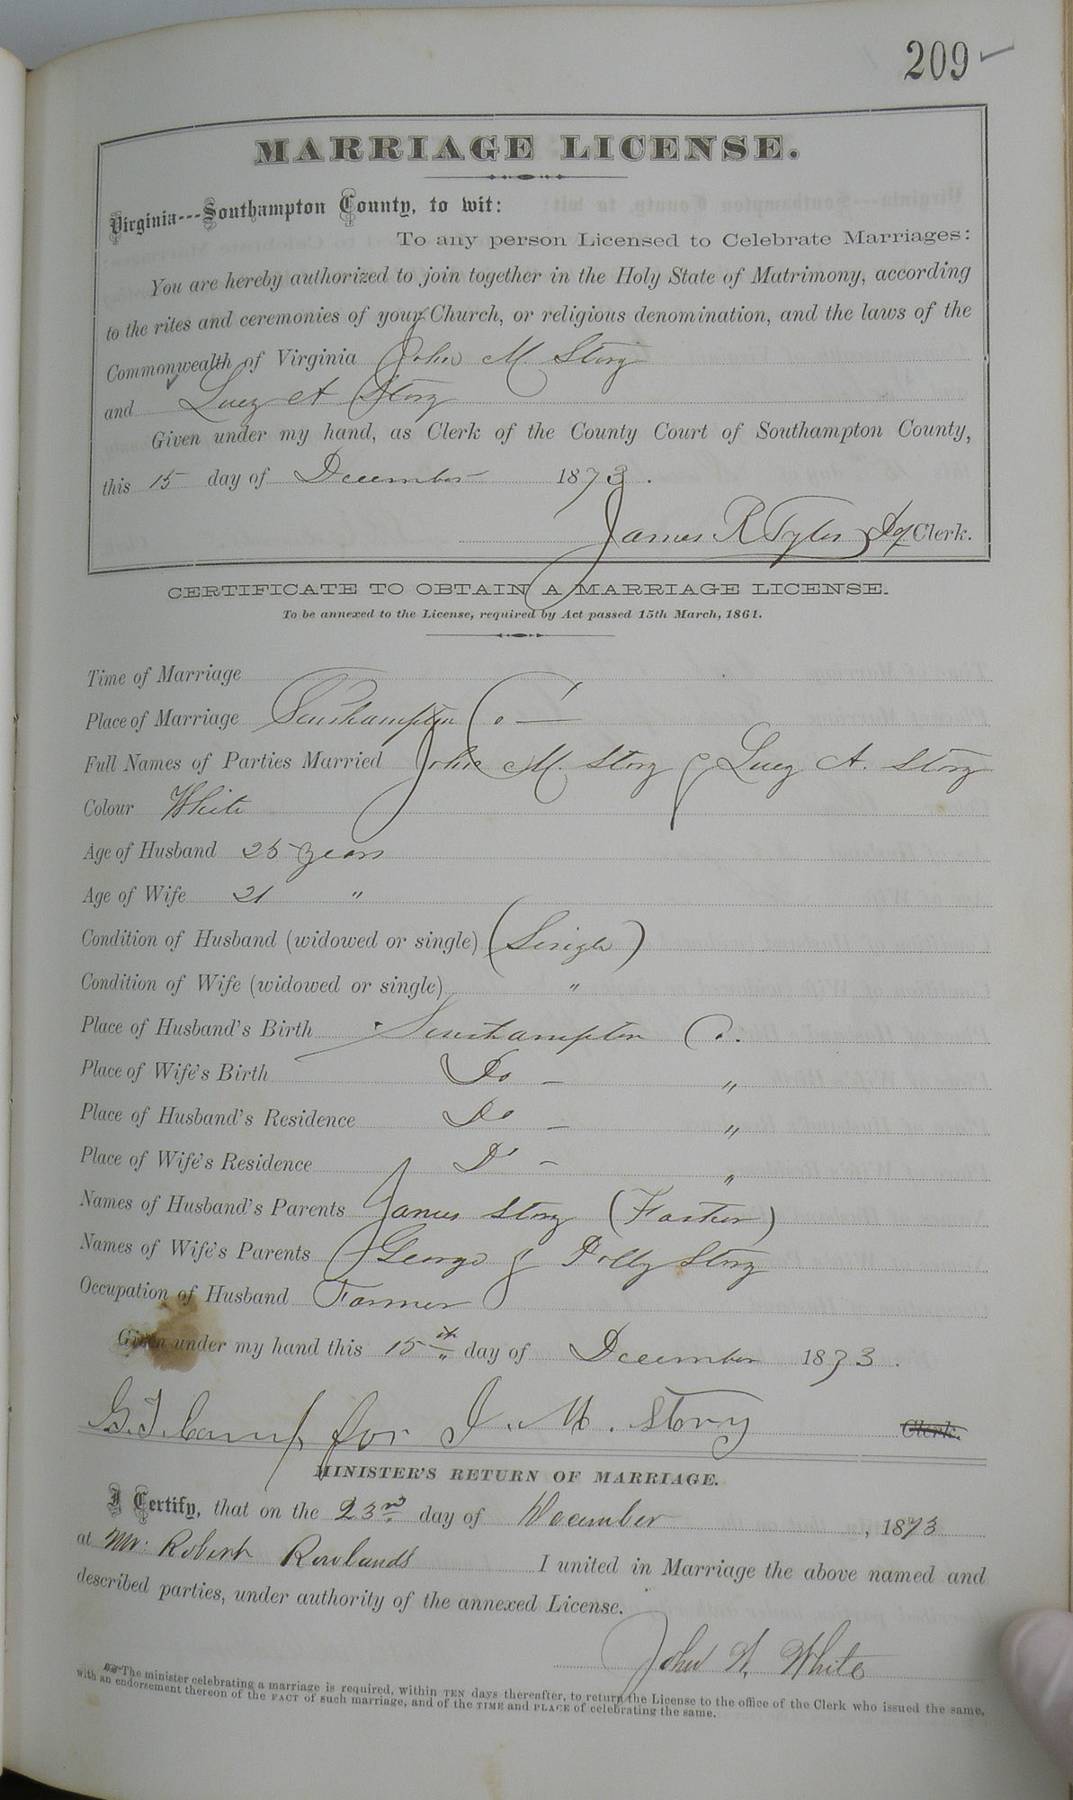 209
MARRIAGE LICENSE.
Virginia---Southampton County, to wit:
To any person Licensed to Celebrate Marriages:
You are hereby authorized to join together in the Holy State of Matrimony, according
to the rites and ceremonies of your Church, or religious denomination, and the laws of the
Commonwealth of Virginia John M. Story
and Lucy A Story
Given under my hand, as Clerk of the County Court of Southampton County,
this 15 day of December 1873.
James R Tyler Dy Clerk.
CERTIFICATE TO OBTAIN A MARRIAGE LICENSE.
To be annexed to the License, required by Act passed 15th March, 1861.
Time of Marriage
Place of Marriage Southampton Co.
Full Names of Parties Married John M. Story & Lucy A. Story
Colour White
Age of Husband 25 years
Age of Wife 21 "
Condition of Husband (widowed or single) (Single)
Condition of Wife (widowed or single) "
Place of Husband's Birth Southampton Co.
Place of Wife's Birth Do - "
Place of Husband's Residence Do - "
Place of Wife's Residence Do - "
Names of Husband's Parents James Story (Father)
Names of Wife's Parents George & Polly Story
Occupation of Husband Farmer
Given under my hand this 15th day of December 1873.
G.T. Camp for J. M. Story Clerk.
MINISTER'S RETURN OF MARRIAGE.
I Certify, that on the 23rd day of December, 1873
at Mr. Robert Rowlands I united in Marriage the above named and
described parties, under authority of the annexed License.
John W. White
The minister celebrating a marriage is required, within TEN days thereafter, to return the License to the office of the Clerk who issued the same,
with an endorsement thereon of the FACT of such marriage, and of the TIME and PLACE of celebrating the same.